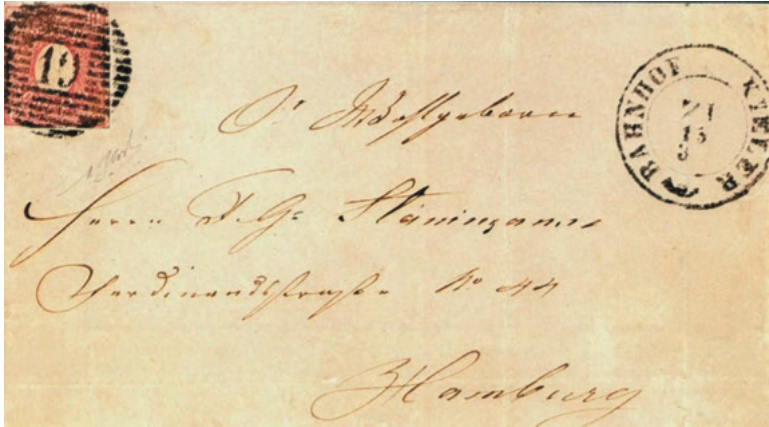 19
KIELER BAHNHOF
21
15
S! Wohlgeboren
Herrn F. G.
Ferdinandstrasse No 44
Hamburg